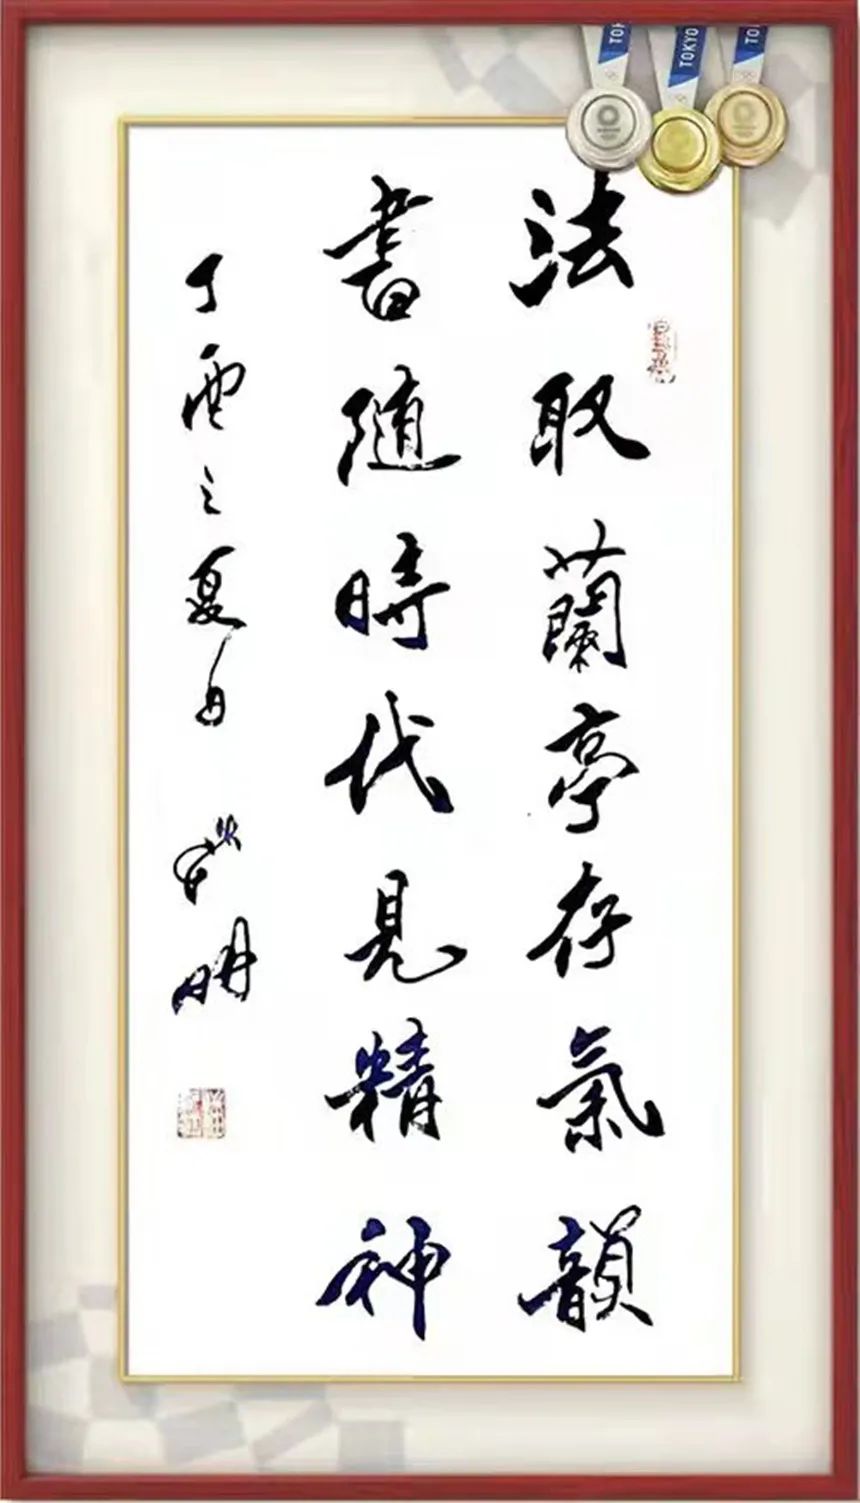 TO
TOKYO
TO
法取蘭亭存氣韻
書随時代見精神
丁酉之夏
明